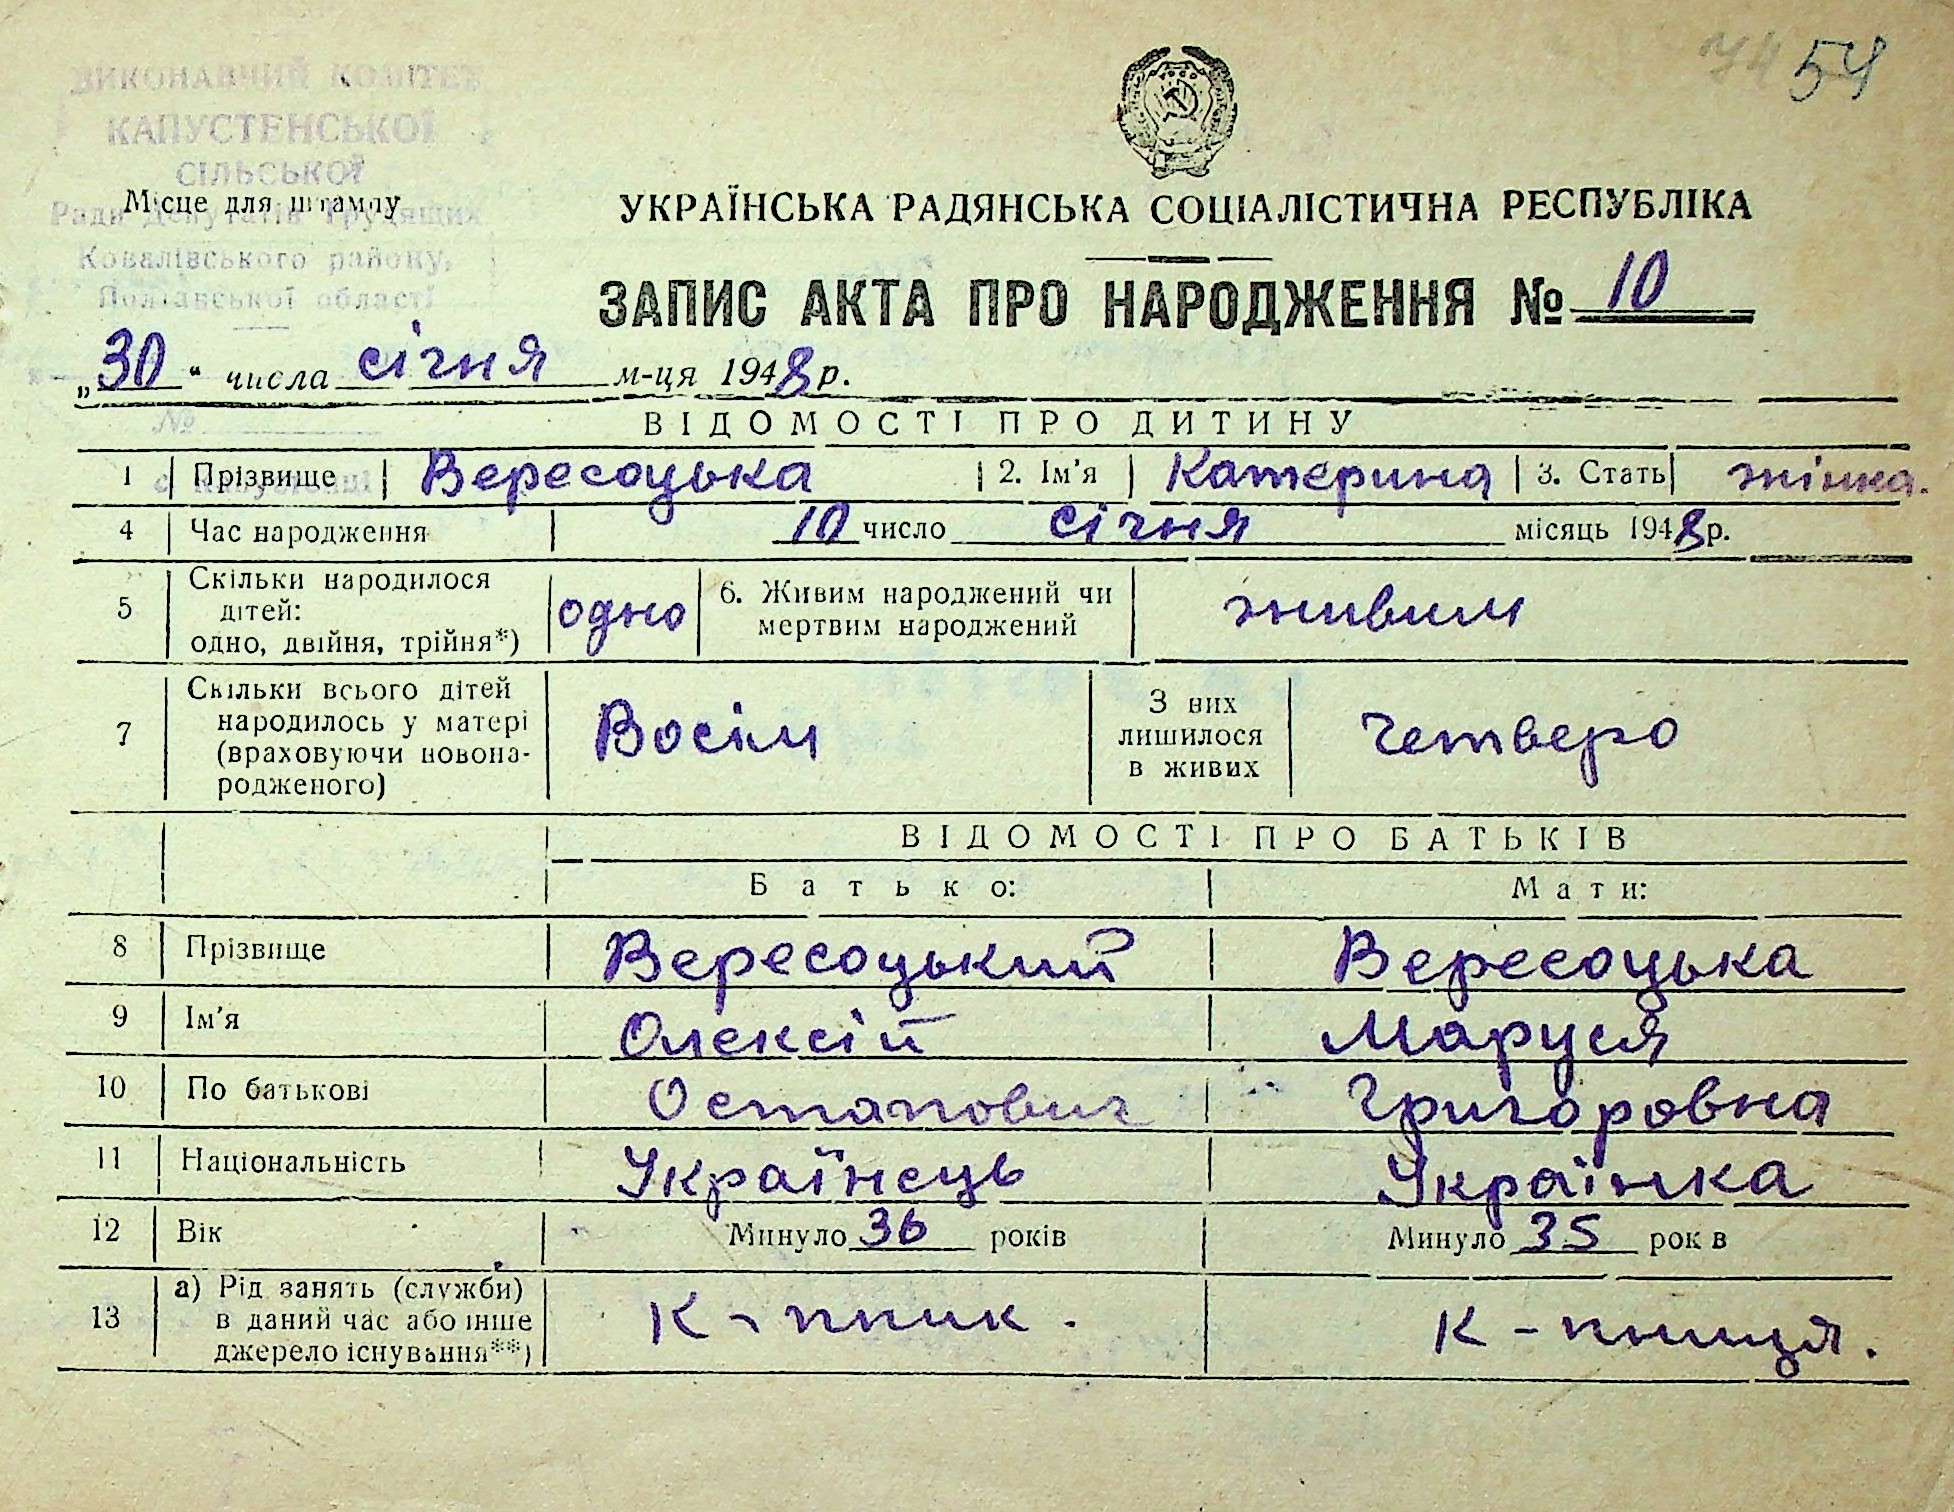 54
ВИКОНАВЧИЙ КОМІТЕТ
КАПУСТЕНСЬКОЇ
СІЛЬСЬКОЇ
Ради Депутатів Трудящих
Ковалівського району,
Полтавської області
№
Місце для штампу
УКРАЇНСЬКА РАДЯНСЬКА СОЦІАЛІСТИЧНА РЕСПУБЛІКА
ЗАПИС АКТА ПРО НАРОДЖЕННЯ № 10
„30“ числа січня м-ця 1948 р.
ВІДОМОСТІ ПРО ДИТИНУ
1 Прізвище Вересоцька 2. Ім'я Катерина 3. Стать жінка.
4 Час народження 10 число січня місяць 1948 р.
5 Скільки народилося дітей: одно, двійня, трійня*) одно 6. Живим народжений чи мертвим народжений живим
7 Скільки всього дітей народилось у матері (враховуючи новонародженого) Восім З них лишилося в живих четверо
ВІДОМОСТІ ПРО БАТЬКІВ
Батько: Мати:
8 Прізвище Вересоцький Вересоцька
9 Ім'я Олексій Маруся
10 По батькові Остапович Григоровна
11 Національність Українець Українка
12 Вік Минуло 36 років Минуло 35 рок в
13 а) Рід занять (служби) в даний час або інше джерело існування**) К-пник. К-пниця.